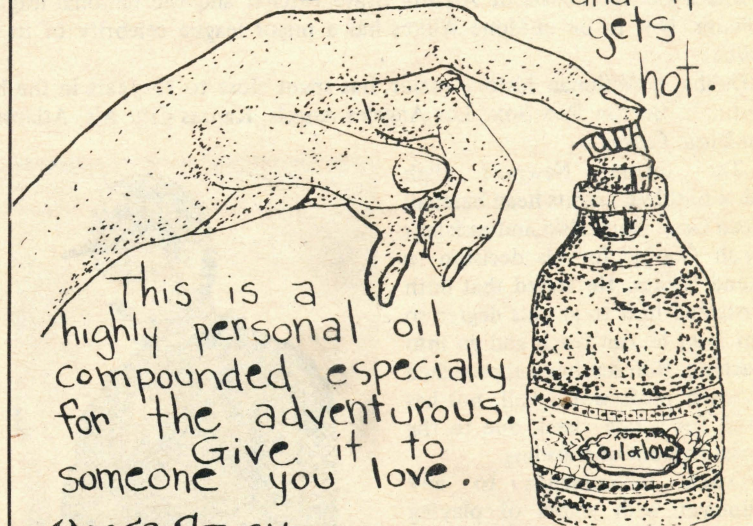 gets
hot.
TOUCH
This is a
highly personal oil
compounded especially
for the adventurous.
Give it to
someone you love.
oil of love